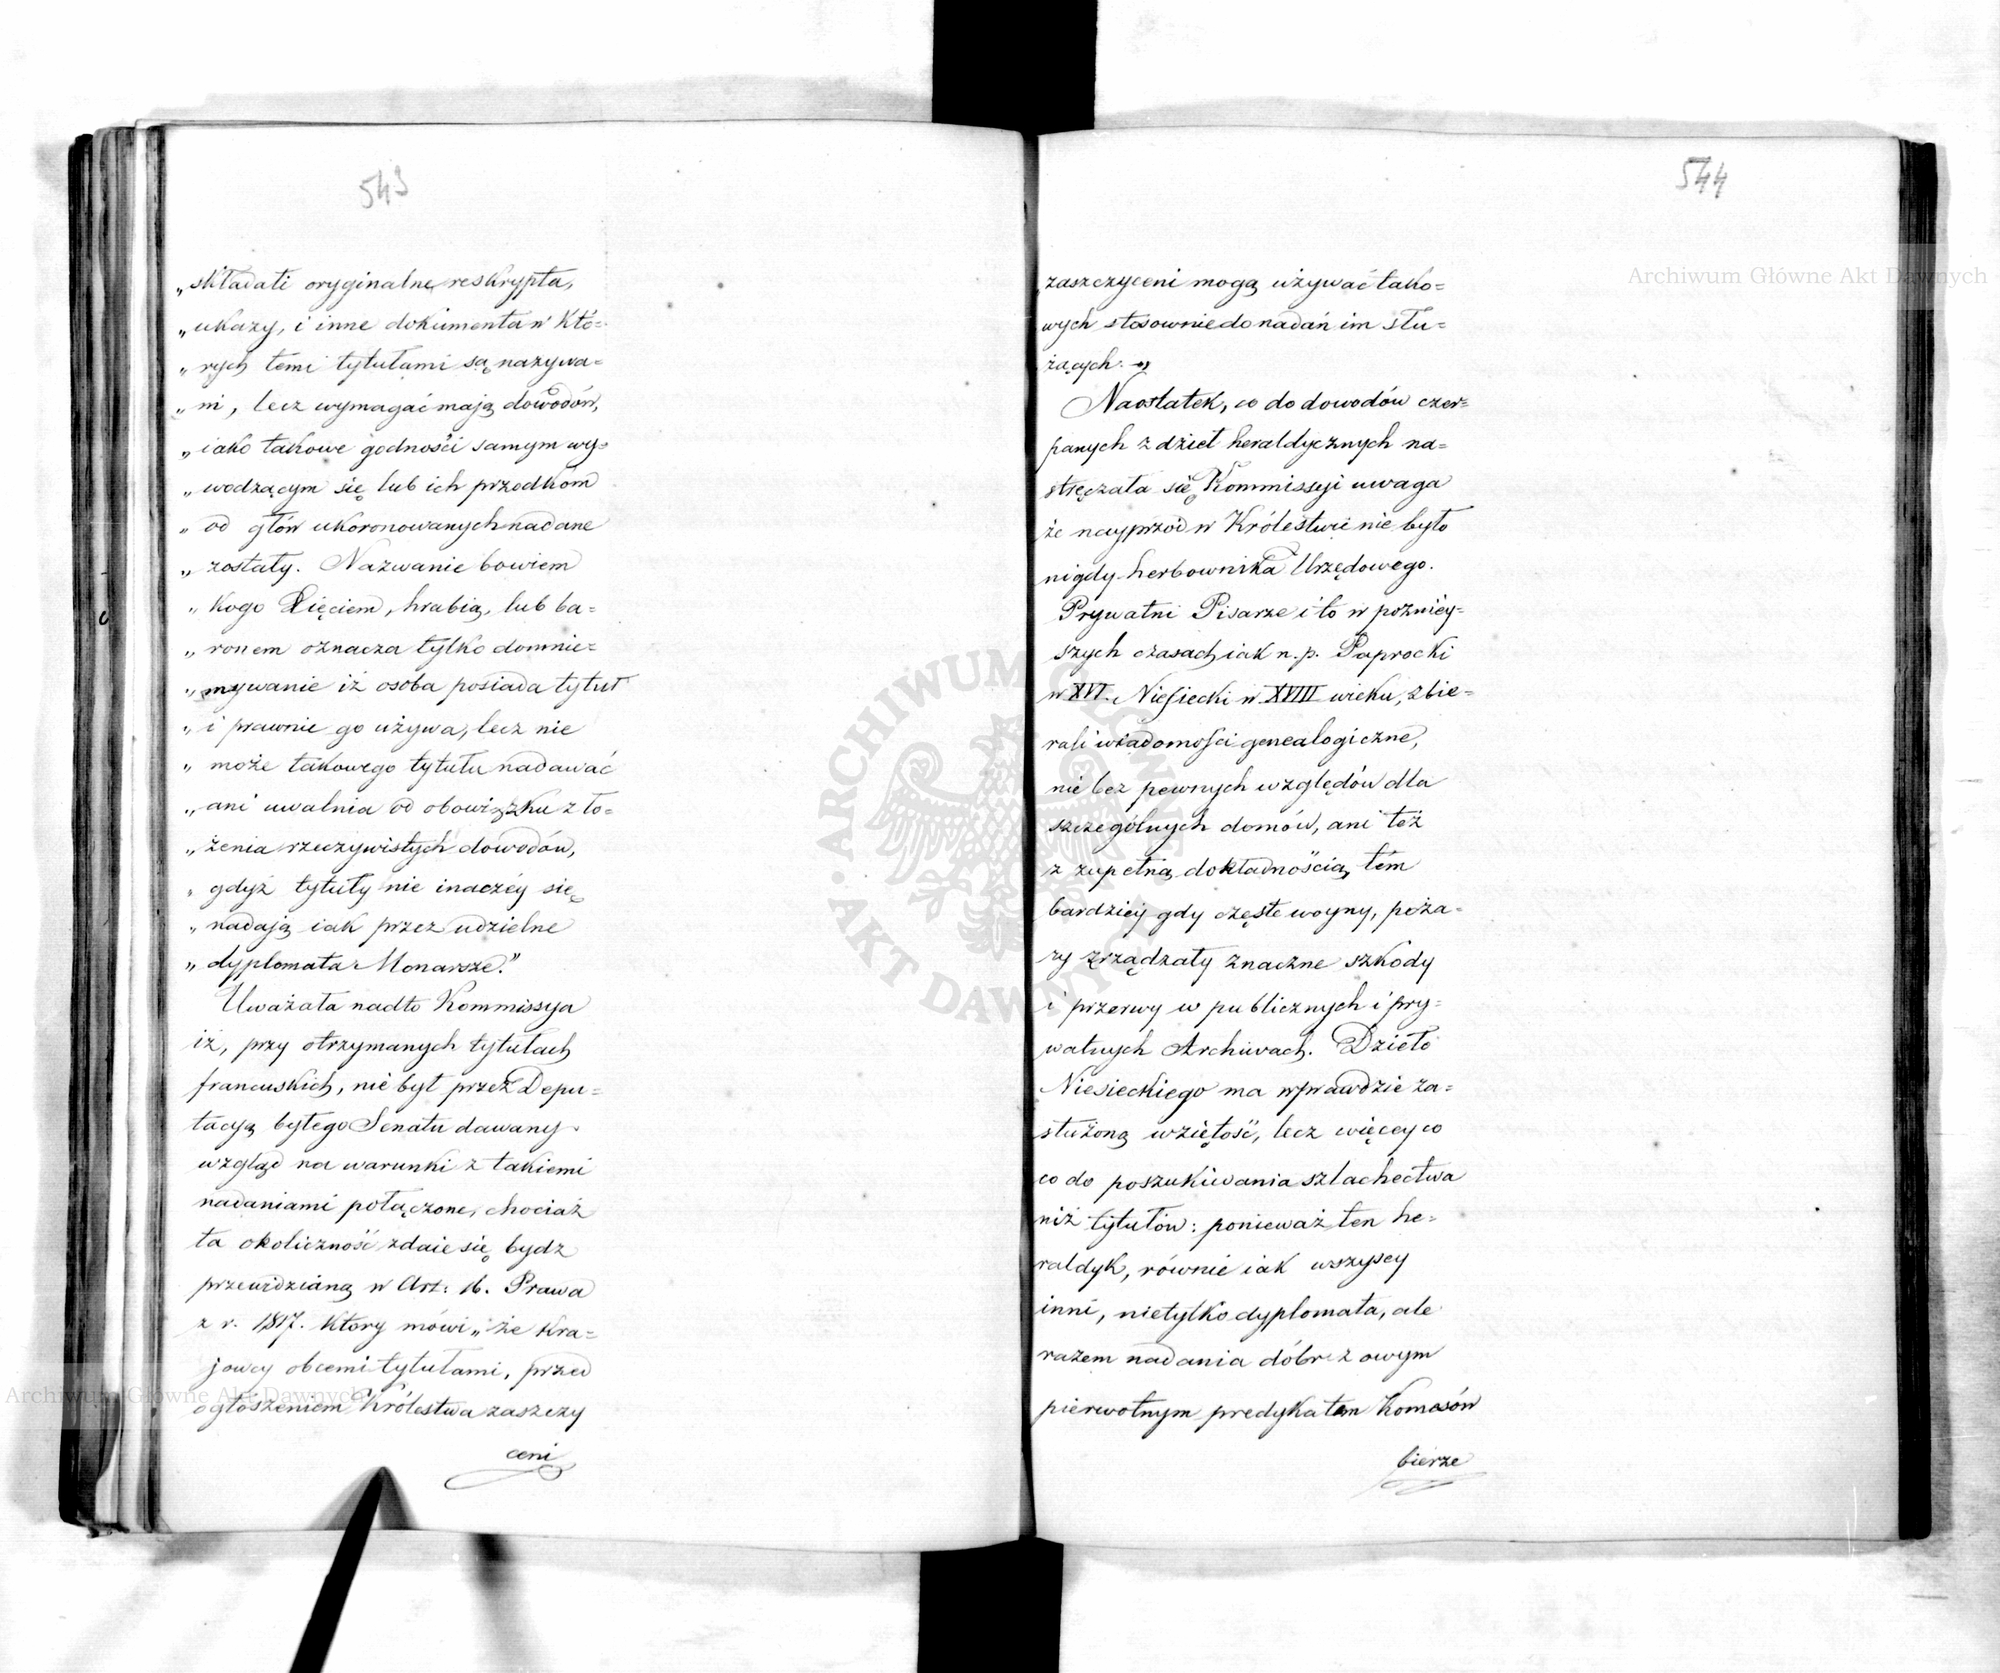 543
„składali oryginalne reskrypta,
„ukazy, i inne dokumenta w któ=
„rych temi tytułami są nazywa=
„ni, lecz wymagać mają dowodów,
„iako takowe godności samym wy=
„wodzącym się lub ich przodkom
„od głów ukoronowanych nadane
„zostały. Nazwanie bowiem
„kogo Xięciem, hrabią, lub ba=
„ronem oznacza tylko domnie=
„mywanie iż osoba posiada tytuł
„i prawnie go używa, lecz nie
„może takowego tytułu nadawać
„ani uwalnia od obowiązku zło=
„żenia rzeczywistych dowodów,
„gdyż tytuły nie inaczéy się
„nadają iak przez udzielne
„dyplomata Monarsze."
Uważała nadto Kommissya
iż, przy otrzymanych tytułach
francuskich, nie był przez Depu=
tacyą byłego Senatu dawany
wzgląd na warunki z takiemi
nadaniami połączone, chociaż
ta okoliczność zdaie się bydz
przewidzianą w Art: 16. Prawa
z r. 1817. który mówi „że kra=
jowcy obcemi tytułami, przed
ogłoszeniem Królestwa zaszczy
ceni
544
zaszczyceni mogą używać tako=
wych stosownie do nadań im słu=
żących."
Naostatek, co do dowodów czer=
panych z dzieł heraldycznych na=
stręczała się Kommissyi uwaga
że nayprzód w Królestwie nie było
nigdy herbownika Urzędowego.
Prywatni Pisarze i to w poźniéy=
szych czasach iak n.p. Paprocki
w XVI. Niesiecki w XVIII wieku, zbie=
rali wiadomości genealogiczne,
nie bez pewnych względów dla
szczególnych domów, ani też
z zupełną dokładnością, tém
bardziéy gdy częste woyny, poża=
ry zrządzały znaczne szkody
i przerwy w publicznych i pry=
watnych Archiwach. Dzieło
Niesieckiego ma wprawdzie za=
służoną wziętość, lecz więcey co
co do poszukiwania szlachectwa
niż tytułów: ponieważ ten he=
raldyk, równie iak wszyscy
inni, nietylko dyplomata, ale
razem nadania dóbr z owym
pierwotnym predykatem Komesów
bierze
Archiwum Główne Akt Dawnych
Archiwum Główne Akt Dawnych
ARCHIWUM GŁÓWNE AKT DAWNYCH